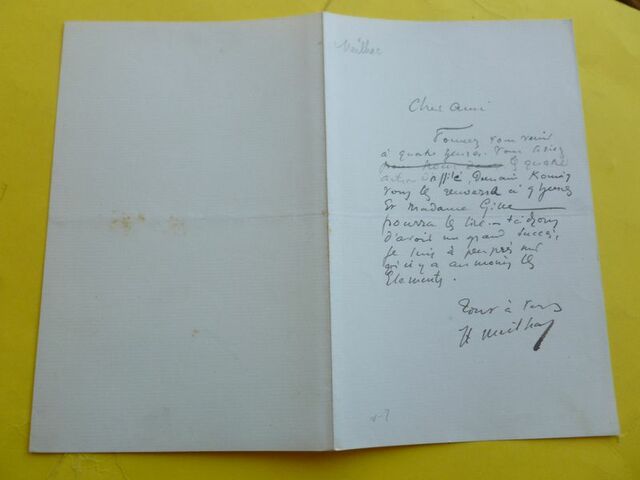 Meilhac
Cher ami
Pouvez vous venir
à quatre heures. Vous lisiez
le quatre
Demain Koning
vous les renverra à 9 heures
et Madame Gille
pourra les lire — tâchons
d'avoir un grand succès,
je suis à peu près sûr
qu'il y a au moins les
Elements.
Tout à vous
H Meilhac